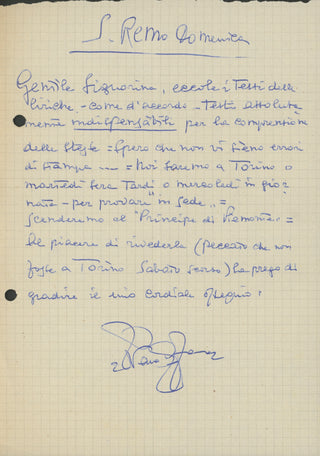 S. Remo Domenica
Gentile Signorina, eccole i Testi delle
liriche - come d'accordo - Testi assoluta
mente indispensabili per la comprensione
delle stesse = Spero che non vi sieno errori
di stampa ... = Noi saremo a Torino o
martedì sera Tardi o mercoledì in gior
nata - per provare "in sede" =
scenderemo al "Principe di Piemonte" =
Al piacere di rivederla (peccato che non
fosse a Torino Sabato scorso) la prego di
gradire il mio cordiale ossequio.